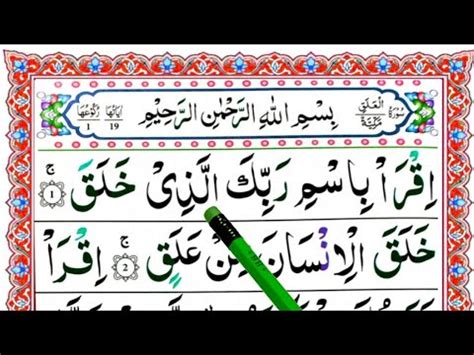 سُورَةُ الْعَلَقِ مَكِّيَّةٌ
بِسْمِ اللهِ الرَّحْمٰنِ الرَّحِيْمِ
اٰيَاتُهَا 19 رُكُوْعُهَا 1
اِقْرَاْ بِاسْمِ رَبِّكَ الَّذِىْ خَلَقَ ج 1
خَلَقَ الْاِنْسَانَ مِنْ عَلَقٍ ج 2 اِقْرَاْ